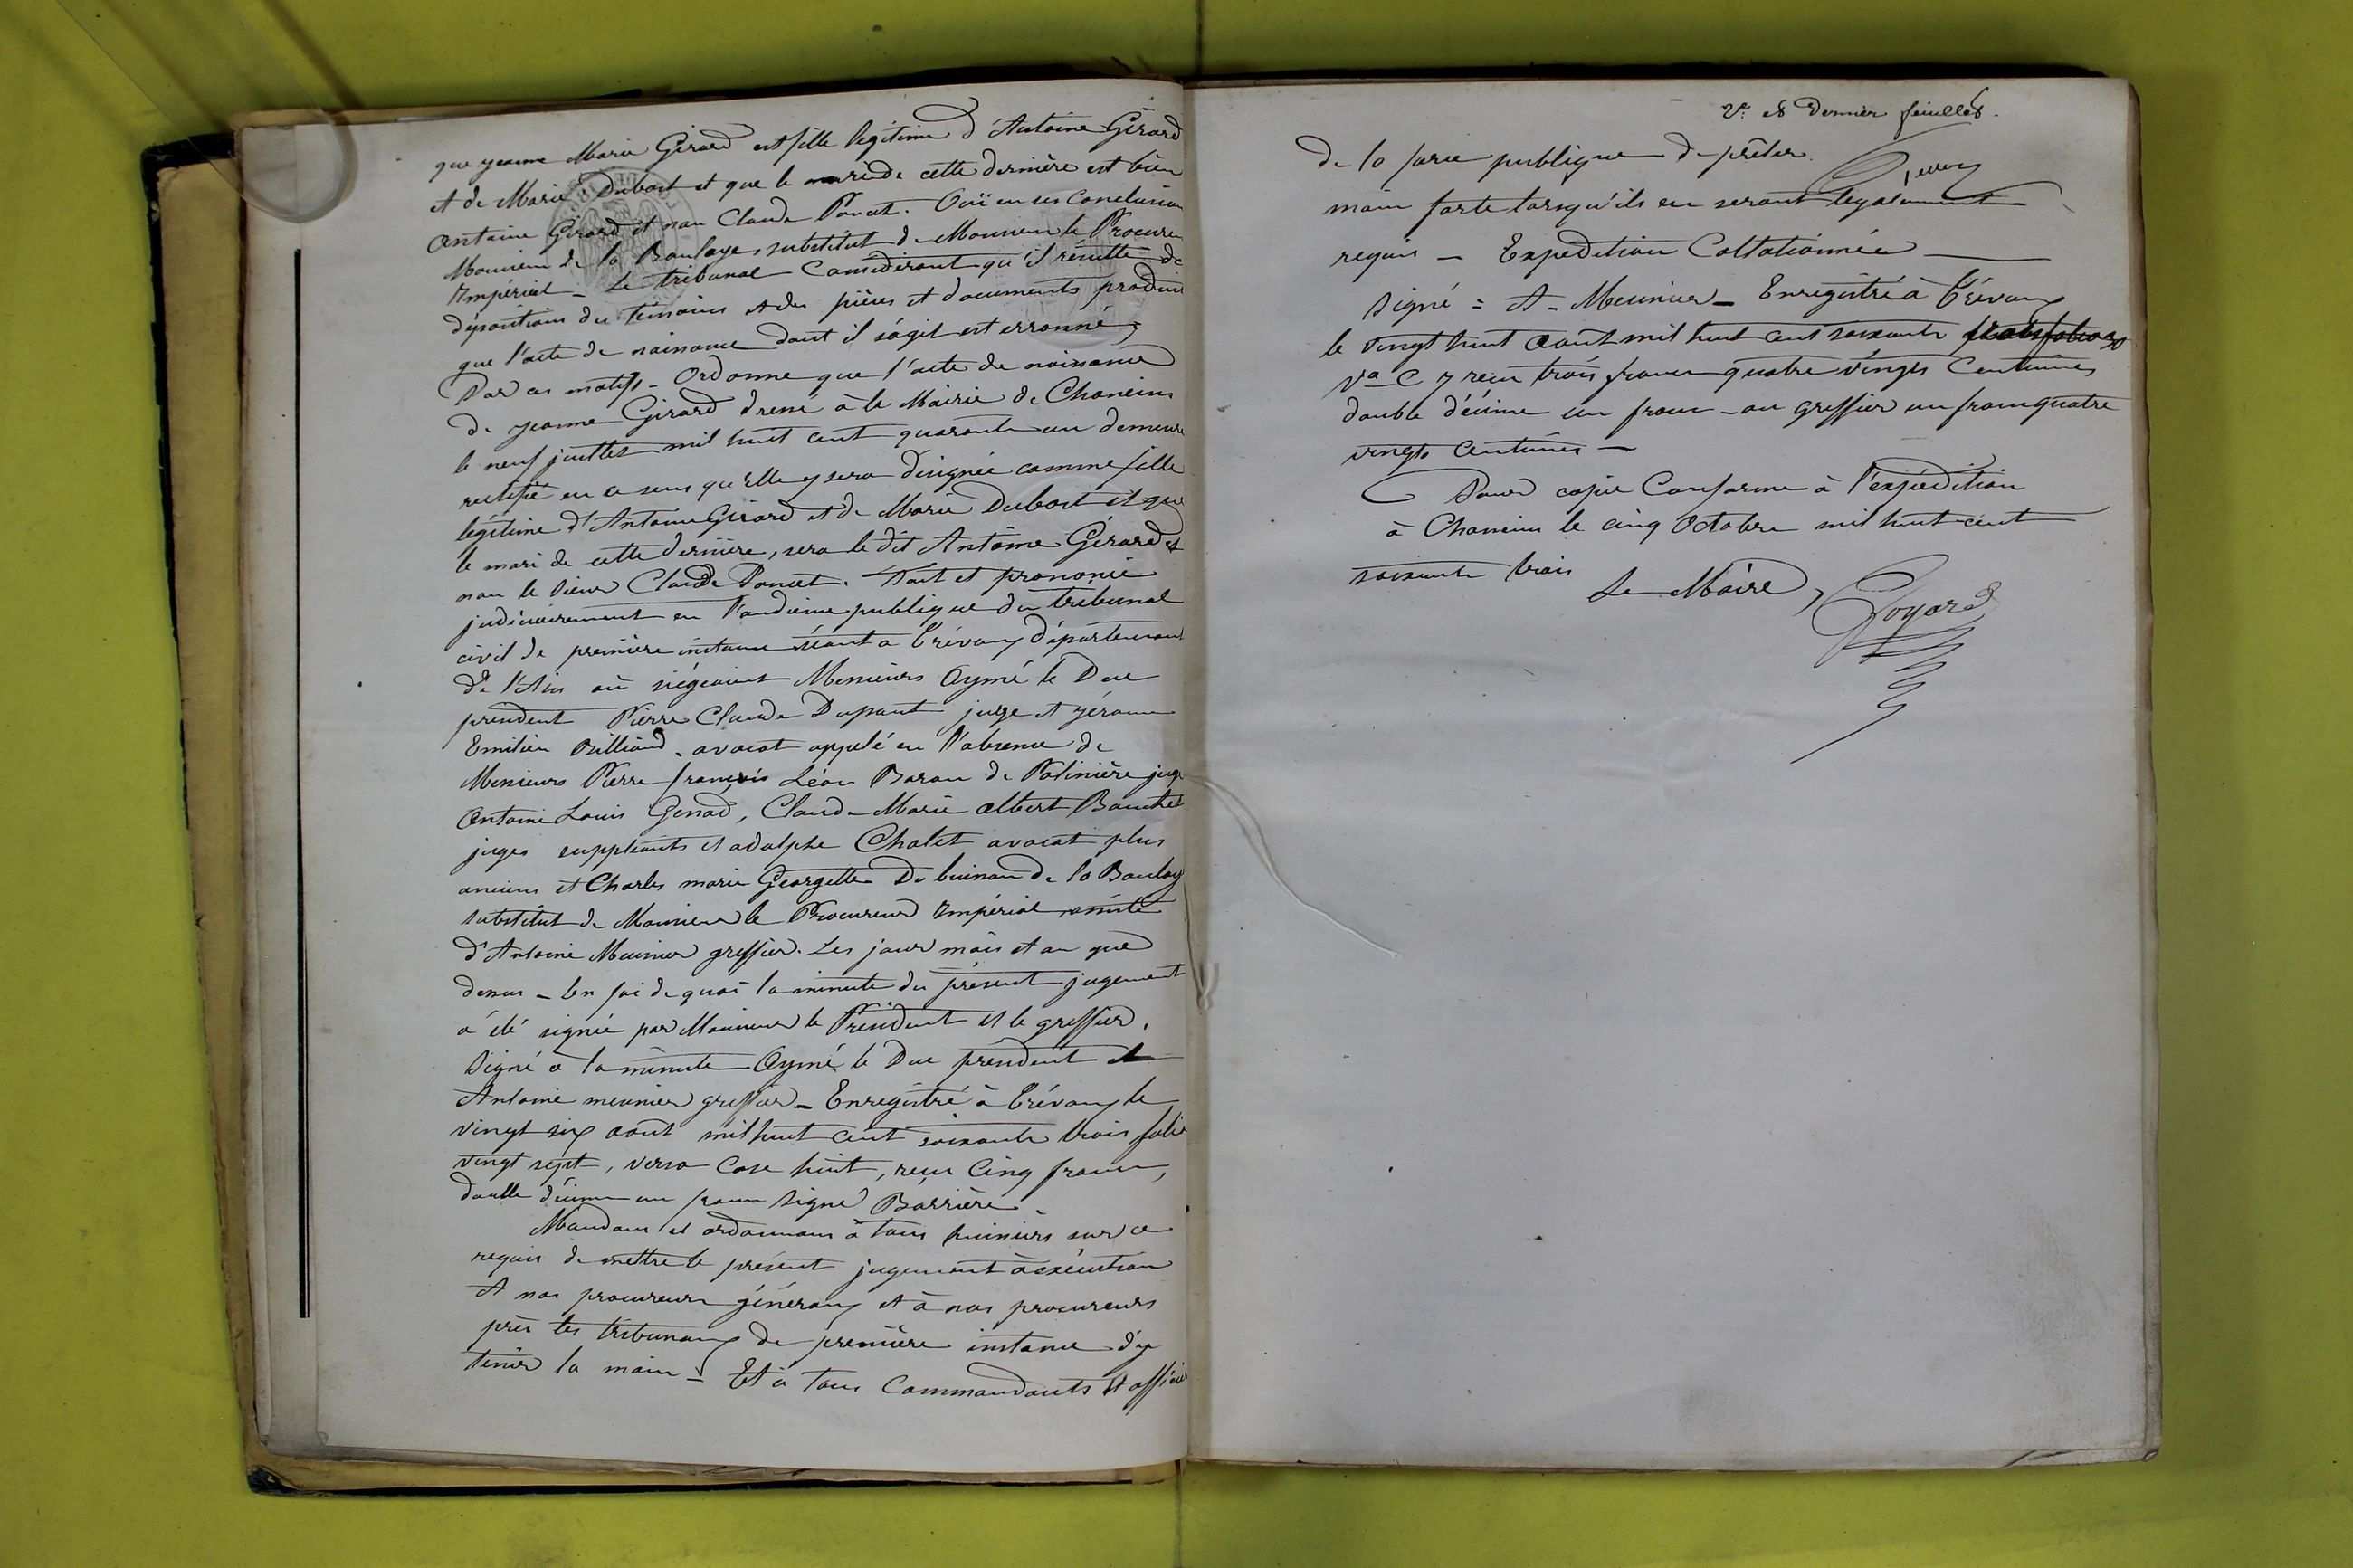 que jeanne Marie Girard est fille légitime d'Antoine Girard
et de Marie Dubost et que le mari de cette dernière est bien
Antoine Girard et non Claude Poncet. Ouï en ses Conclusions
Monsieur de la Boulaye, substitut de Monsieur le Procureur
Impérial _ Le tribunal Considérant qu'il résulte de
dépositions des témoins et des pièces et documents produits
que l'acte de naissance dont il s'agit est erronné,
Par ces motifs _ Ordonne que l'acte de naissance
de jeanne Girard dressé à la Mairie de Chaneins
le neuf juillet mil huit cent quarante un demeure
rectifié en ce sens qu'Elle y sera désignée comme fille
légitime d'Antoine Girard et de Marie Dubost et que
le mari de cette dernière, sera le dit Antoine Girard et
non le sieur Claude Poncet. Fait et prononcé
judiciairement en l'audience publique du tribunal
civil de première instance séant à Trévoux département
de l'Ain où siégeaient Messieurs Aymé le Duc
président Pierre Claude Dupont juge et jérome
Emilien avocat appelé en l'absence de
Messieurs Pierre françois Léon Baron de Polinière juge
Antoine Louis Genod, Claude Marie Albert Bouchet
juges suppléants et adolphe Chalet avocat plus
anciens et Charles marie Georgette Du buisson de la Boulaye
substitut de Monsieur le Procureur Impérial assisté
d'Antoine Meunier greffier. Les jour mois et an que
dessus _ En foi de quoi la minute du présent jugement
a été signée par Monsieur le Président et le greffier.
Signé à la minute Aymé le Duc président et
Antoine meunier greffier _ Enregistré à Trévoux le
vingt six août mil huit cent soixante trois folio
vingt sept, verso Case huit, reçu Cinq francs,
double décime un franc signé Barrière
Mandons et ordonnons à tous huissiers sur ce
requis de mettre le présent jugement à exécution
A nos procureurs généraux et à nos procureurs
près les tribunaux de première instance d'y
tenir la main _ Et à tous Commandants et officiers
2e et Dernier feuillet.
de la force publique de prêter
main forte lorsqu'ils en seront légalement
requis _ Expédition Collationnée
Signé = A _ Meunier _ Enregistré à Trévoux
le vingt huit Août mil huit cent soixante trois folio 30
Vo C 7 reçu trois francs quatre vingts Centimes
double décime un franc _ au greffier un franc quatre
vingts Centimes _
Pour copie Conforme à l'expédition
à Chaneins le cinq Octobre mil huit cent
soixante trois
Le Maire,